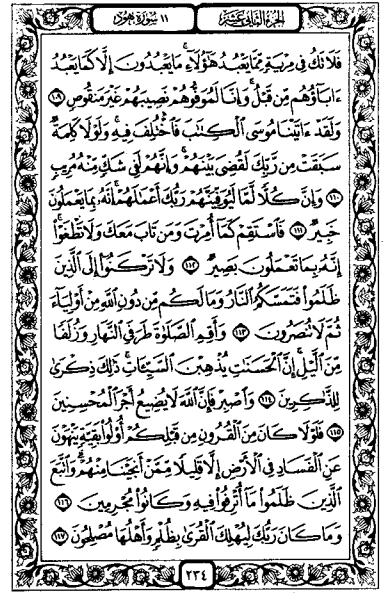 الجزء الثاني عشر
١١ سورة هود
فَلَا تَكُ فِي مِرْيَةٍ مِّمَّا يَعْبُدُ هَٰؤُلَاءِ مَا يَعْبُدُونَ إِلَّا كَمَا يَعْبُدُ
ءَابَاؤُهُم مِّن قَبْلُ وَإِنَّا لَمُوَفُّوهُمْ نَصِيبَهُمْ غَيْرَ مَنقُوصٍ ١٠٩
وَلَقَدْ ءَاتَيْنَا مُوسَى الْكِتَٰبَ فَاخْتُلِفَ فِيهِ وَلَوْلَا كَلِمَةٌ
سَبَقَتْ مِن رَّبِّكَ لَقُضِيَ بَيْنَهُمْ وَإِنَّهُمْ لَفِي شَكٍّ مِّنْهُ مُرِيبٍ
١١٠ وَإِنَّ كُلًّا لَّمَّا لَيُوَفِّيَنَّهُمْ رَبُّكَ أَعْمَٰلَهُمْ إِنَّهُ بِمَا يَعْمَلُونَ
خَبِيرٌ ١١١ فَاسْتَقِمْ كَمَا أُمِرْتَ وَمَن تَابَ مَعَكَ وَلَا تَطْغَوْا
إِنَّهُ بِمَا تَعْمَلُونَ بَصِيرٌ ١١٢ وَلَا تَرْكَنُوا إِلَى الَّذِينَ
ظَلَمُوا فَتَمَسَّكُمُ النَّارُ وَمَا لَكُم مِّن دُونِ اللَّهِ مِنْ أَوْلِيَاءَ
ثُمَّ لَا تُنصَرُونَ ١١٣ وَأَقِمِ الصَّلَوٰةَ طَرَفَيِ النَّهَارِ وَزُلَفًا
مِّنَ الَّيْلِ إِنَّ الْحَسَنَٰتِ يُذْهِبْنَ السَّيِّـَٔاتِ ذَٰلِكَ ذِكْرَىٰ
لِلذَّٰكِرِينَ ١١٤ وَاصْبِرْ فَإِنَّ اللَّهَ لَا يُضِيعُ أَجْرَ الْمُحْسِنِينَ
١١٥ فَلَوْلَا كَانَ مِنَ الْقُرُونِ مِن قَبْلِكُمْ أُولُوا بَقِيَّةٍ يَنْهَوْنَ
عَنِ الْفَسَادِ فِي الْأَرْضِ إِلَّا قَلِيلًا مِّمَّنْ أَنجَيْنَا مِنْهُمْ وَاتَّبَعَ
الَّذِينَ ظَلَمُوا مَا أُتْرِفُوا فِيهِ وَكَانُوا مُجْرِمِينَ ١١٦
وَمَا كَانَ رَبُّكَ لِيُهْلِكَ الْقُرَىٰ بِظُلْمٍ وَأَهْلُهَا مُصْلِحُونَ ١١٧
٢٣٤